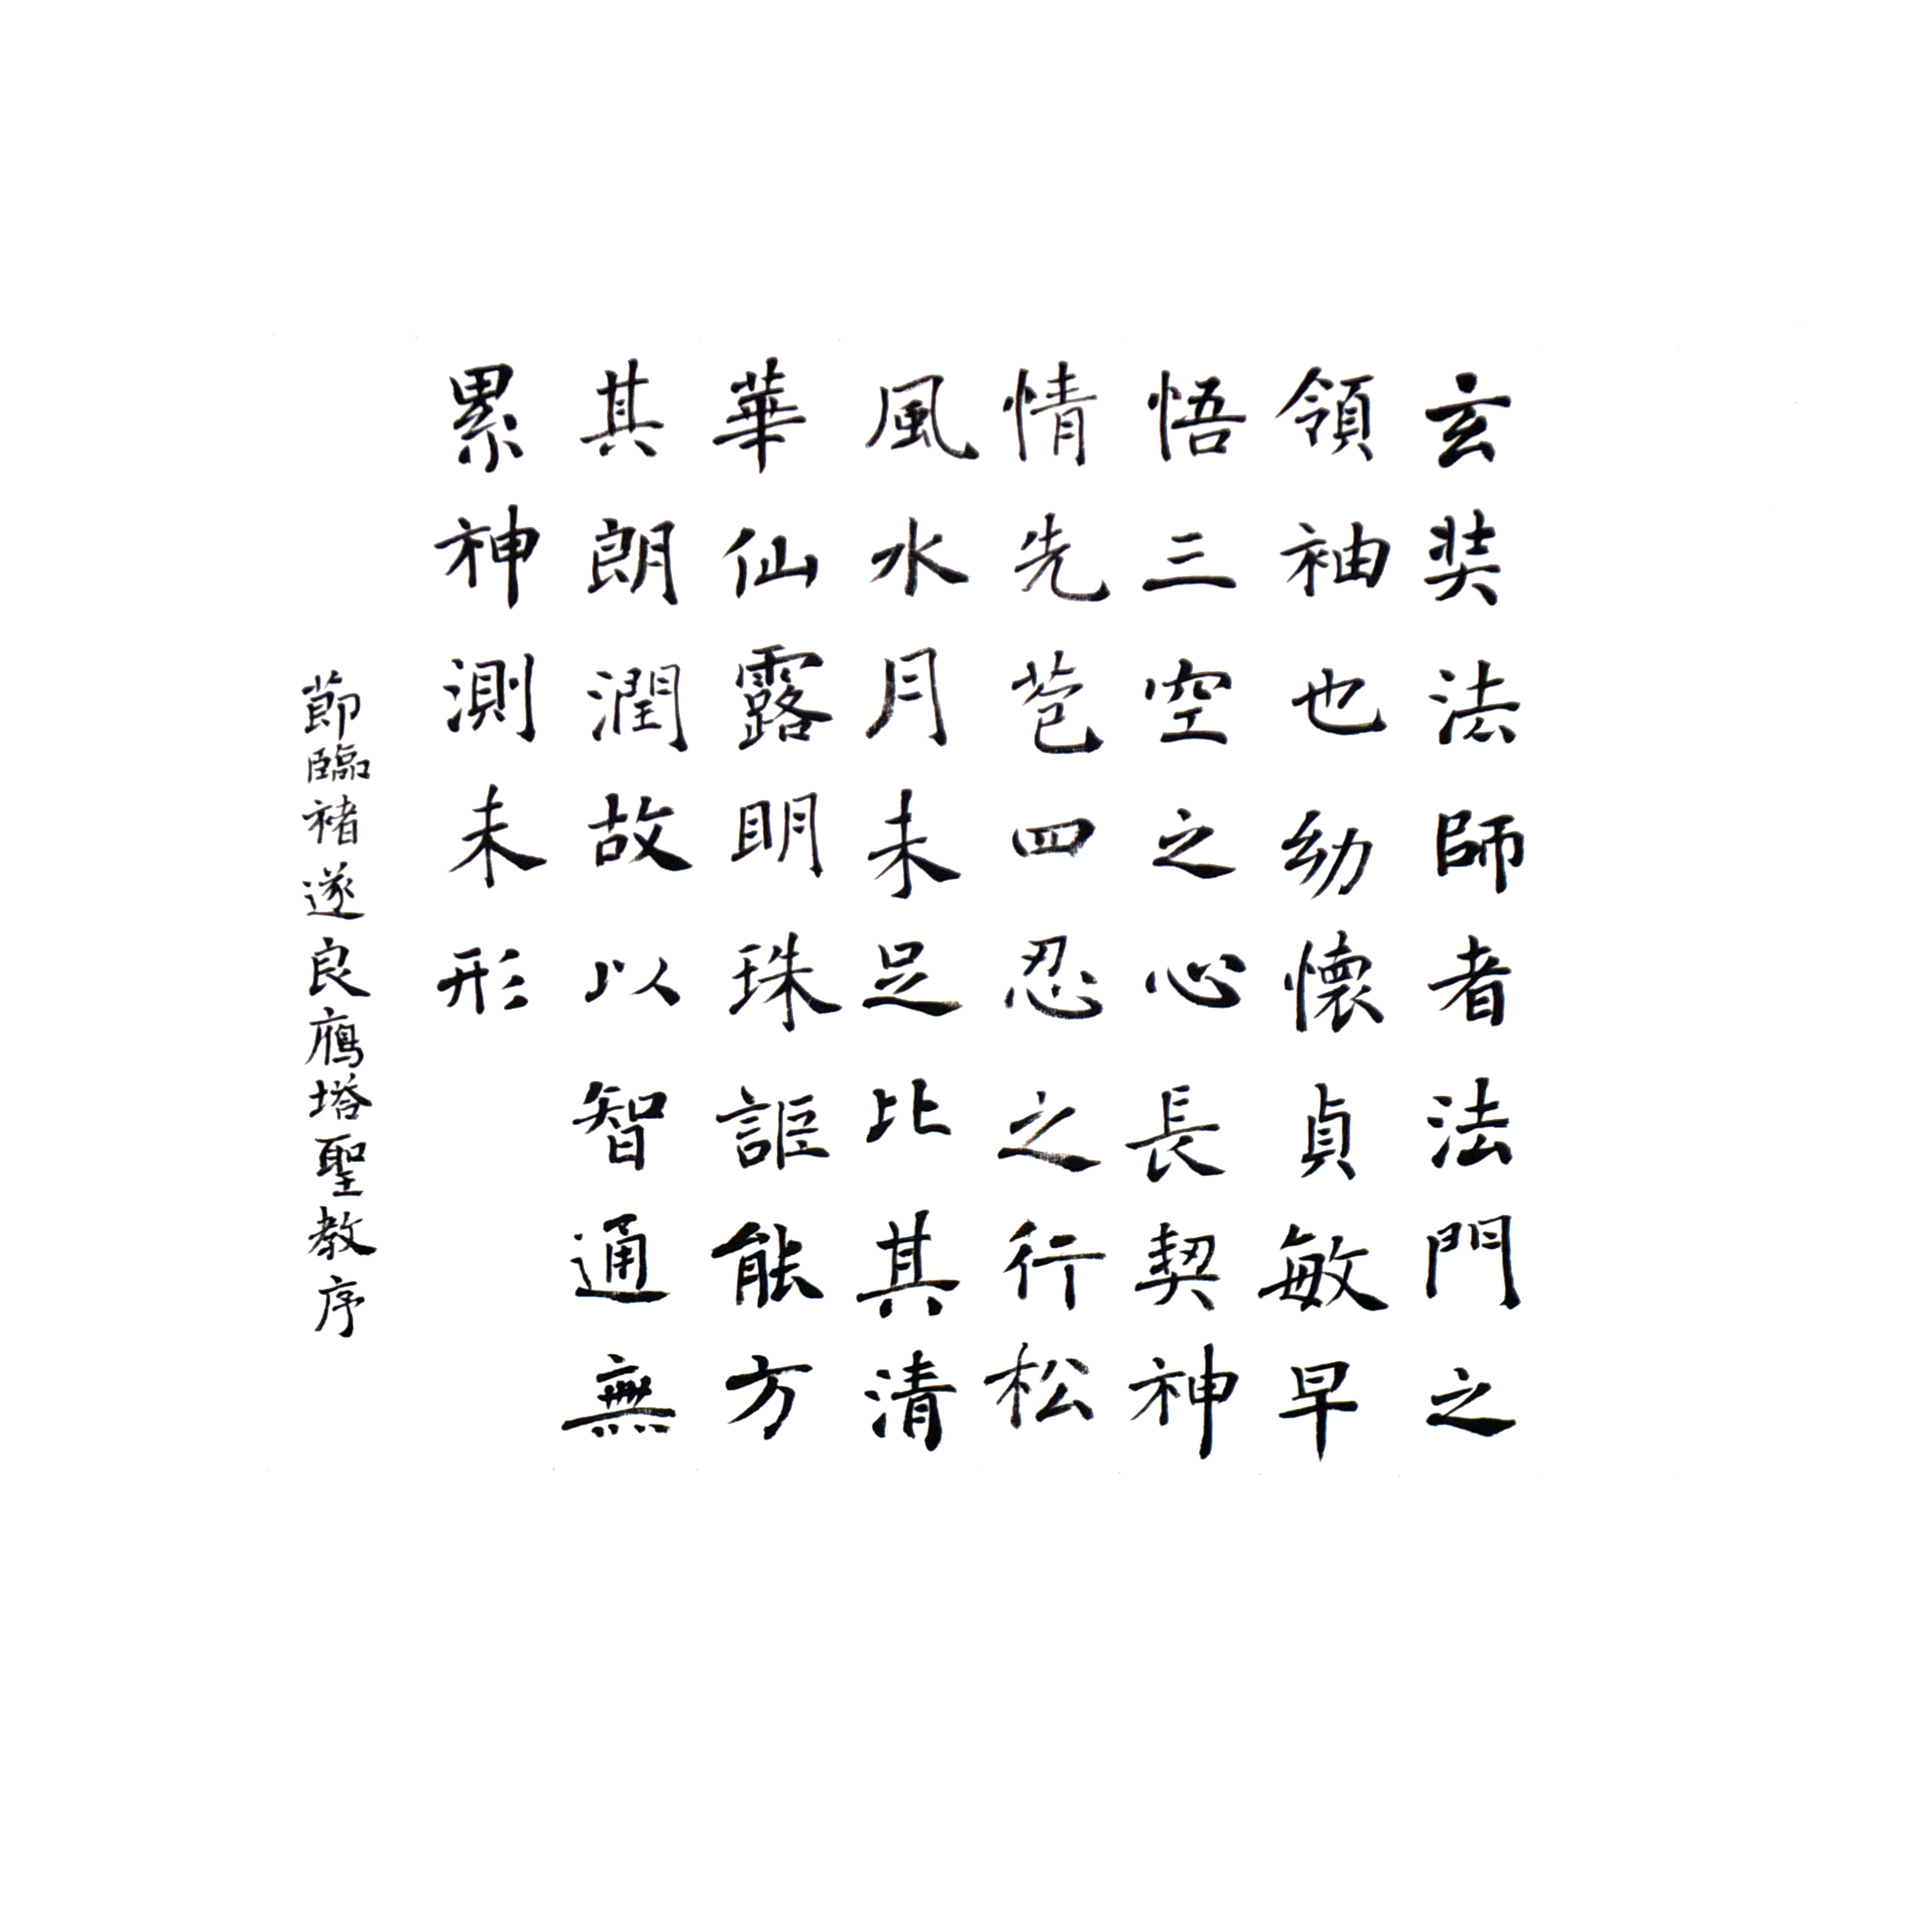 玄奘法師者法門之
領袖也幼懷貞敏早
悟三空之心長契神
情先苞四忍之行松
風水月未足比其清
華仙露明珠詎能方
其朗潤故以智通無
累神測未形
節臨褚遂良鴈塔聖教序